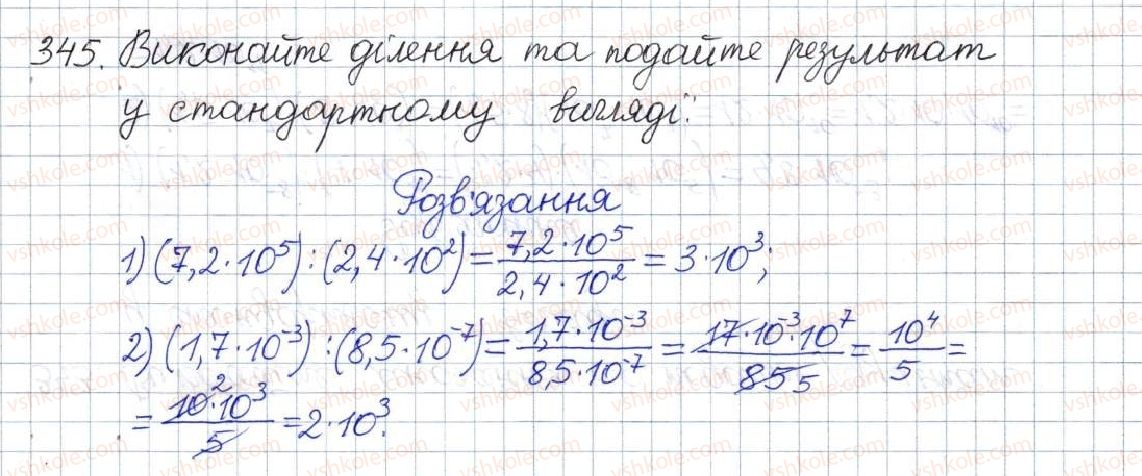 345. Виконайте ділення та подайте результат
у стандартному вигляді:
Розв'язання
1) (7,2·10⁵):(2,4·10²)= 7,2·10⁵ / 2,4·10² = 3·10³;
2) (1,7·10⁻³):(8,5·10⁻⁷)= 1,7·10⁻³ / 8,5·10⁻⁷ = 17·10⁻³·10⁷ / 85 5 = 10⁴ / 5 =
= 10 2·10³ / 5 = 2·10³.